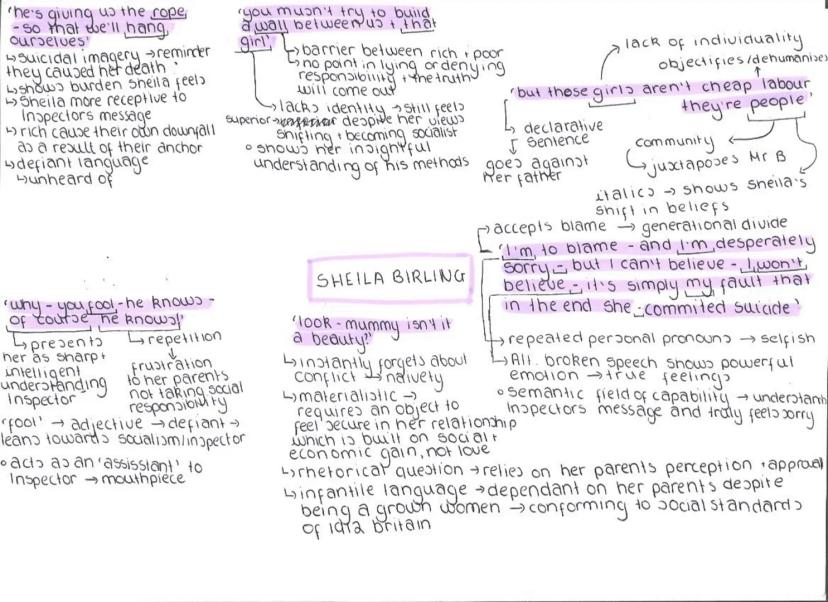 'he's giving us the rope
- so that we'll hang
ourselves'
↳suicidal imagery →reminder
they caused her death
↳shows burden Sheila feels
↳Sheila more receptive to
Inspectors message
↳rich cause their own downfall
as a result of their anchor
↳defiant language
↳unheard of
'you musn't try to build
a wall between us + that
girl'
↳barrier between rich + poor
↳no point in lying or denying
responsibility + the truth
will come out
↳lacks identity → still feels
superior despite her views
shifting + becoming socialist
• shows her insightful
understanding of his methods
→ lack of individuality
objectifies/dehumanises
'but these girls aren't cheap labour
they're people'
↳ declarative
sentence
↓
goes against
her father
community
↳ juxtaposes Mr B
italics → shows Sheila's
shift in beliefs
SHEILA BIRLING
→accepts blame → generational divide
'I'm to blame - and I'm desperately
sorry - but I can't believe - I won't
believe - it's simply my fault that
in the end she - commited suicide'
→repeated personal pronouns → selfish
→All. broken speech shows powerful
emotion → true feelings
• semantic field of capability → understands
Inspectors message and truly feels sorry
'why - you fool - he knows -
of course he knows!'
↳presents
her as sharp +
intelligent
understanding
Inspector
↳repetition
↓
frustration
to her parents
not taking social
responsibility
'fool' → adjective → defiant →
leans towards socialism/inspector
• acts as an 'assisstant' to
Inspector → mouthpiece
'look - mummy isn't it
a beauty?'
↳instantly forgets about
conflict → naivety
↳materialistic →
requires an object to
feel secure in her relationship
which is built on social +
economic gain, not love
↳rhetorical question → relies on her parents perception + approval
↳infantile language → dependant on her parents despite
being a grown women → conforming to social standards
of 1912 britain